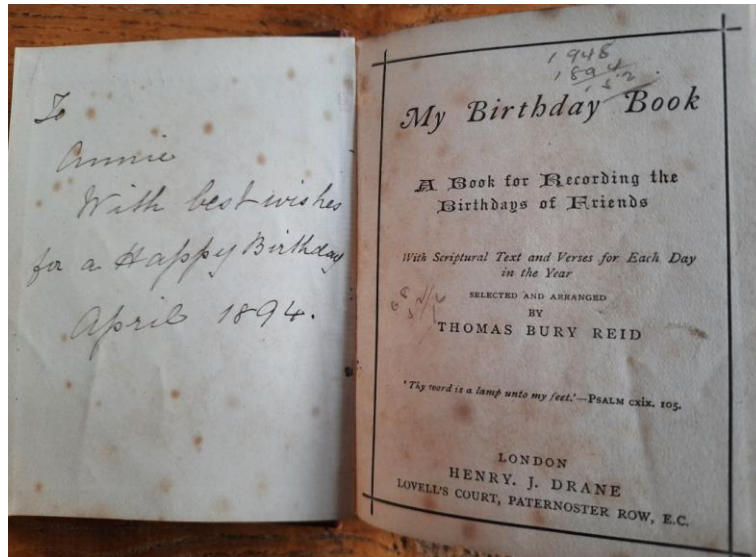 To
Annie
With best wishes
for a Happy Birthday
April 1894.
1948
1894
My Birthday Book
A Book for Recording the
Birthdays of Friends
With Scriptural Text and Verses for Each Day
in the Year
SELECTED AND ARRANGED
BY
THOMAS BURY REID
'Thy word is a lamp unto my feet.'—PSALM cxix. 105.
LONDON
HENRY. J. DRANE
LOVELL'S COURT, PATERNOSTER ROW, E.C.